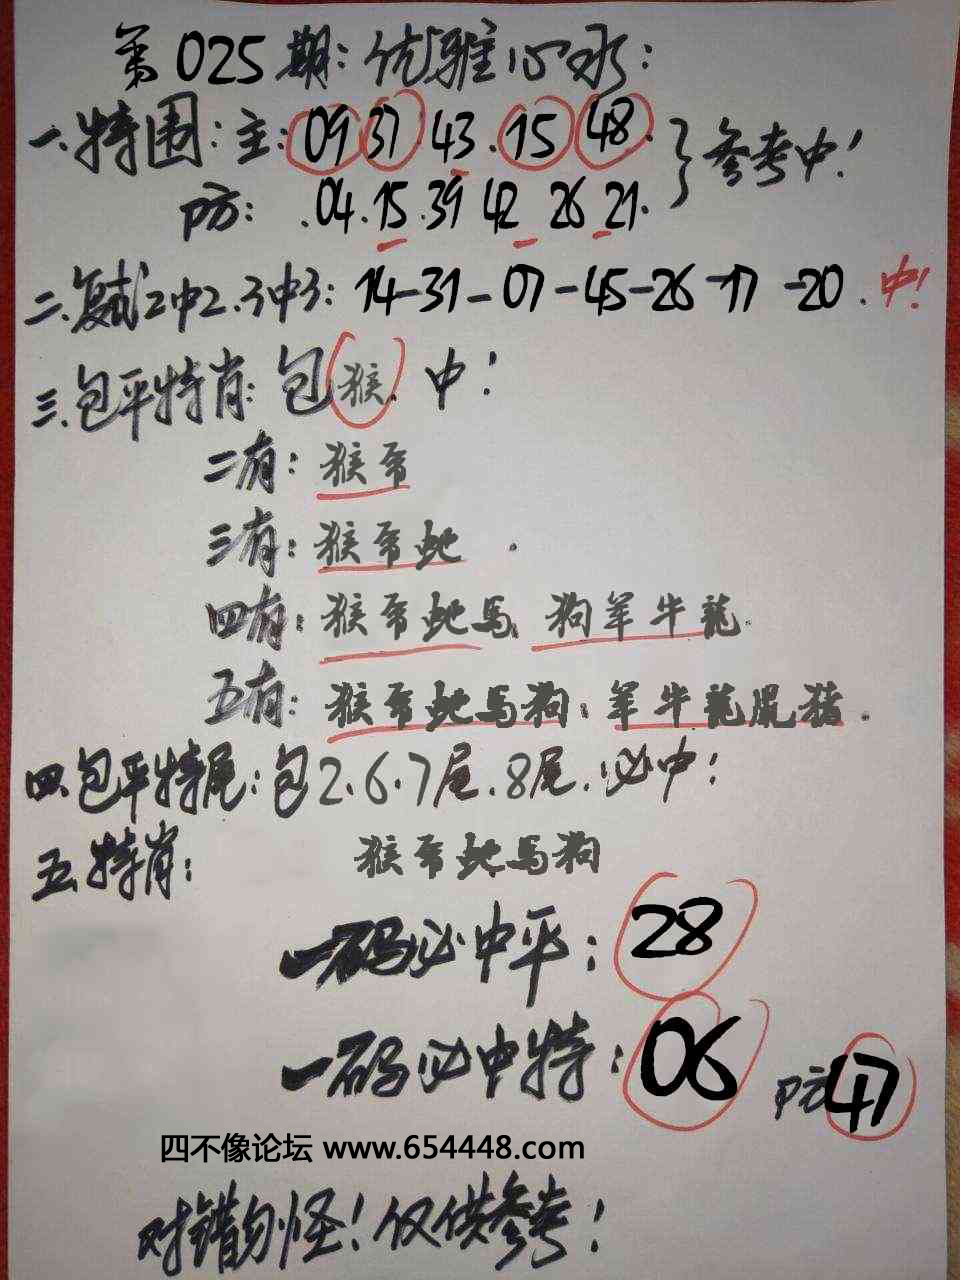 第025期:优雅心水:
一.特围:主:09 37.43.15 48. }参考中!
防:.04.15.39 42 26 21.
二.复试2中2.3中3:14-31-07-45-26-17-20.中!
三.包平特肖:包猴.中!
二有:猴帝
三有:猴帝蛇.
四有:猴帝蛇馬.狗羊牛龍.
五有:猴帝蛇馬狗.羊牛龍鼠猪.
四.包平特尾:包2.6.7尾.8尾.必中!
五.特肖:猴帝蛇馬狗
一码必中平:28
一码必中特:06 防47
四不像论坛 www.654448.com
对错勿怪!仅供参考!